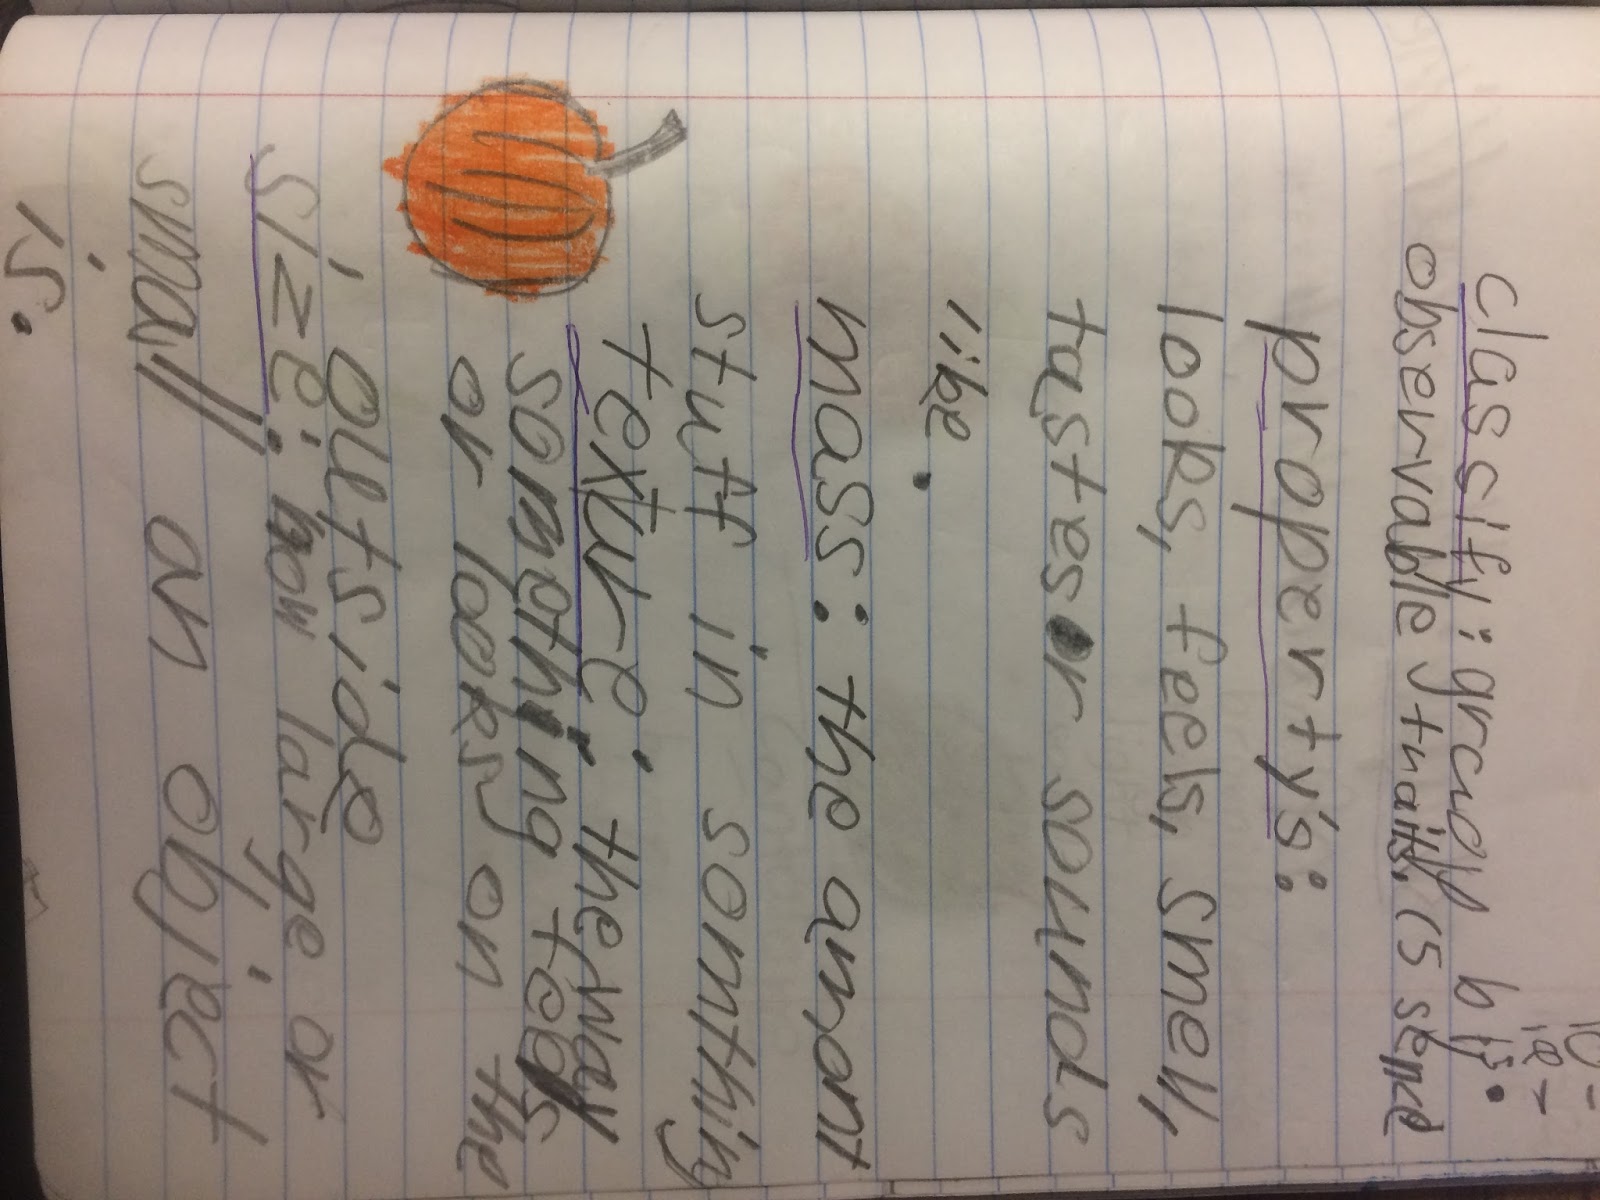 10 -
12 -
classify: grcudy by
observable traits, (5 sens
propertys:
looks, feels, smell,
tastes or sounds
like.
mass: the amont
stuff in somthing
texture: the way
something feels
or looks on the
outside
size: how large or
small an object
is.